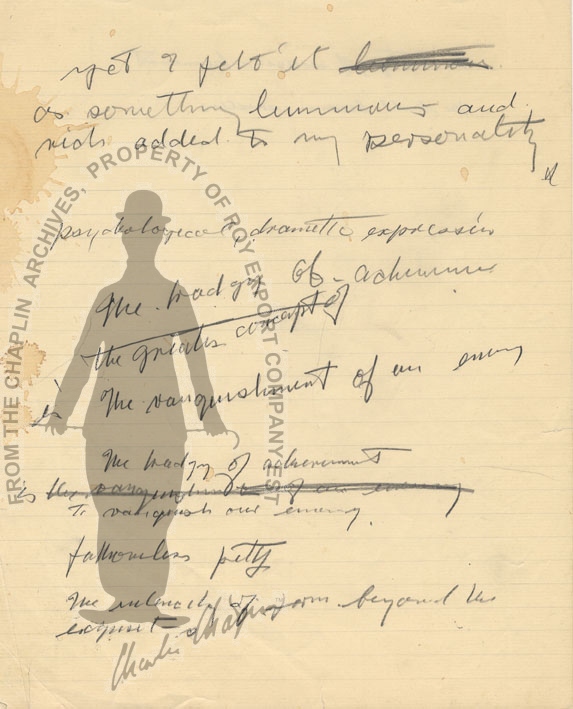 yet I felt it
as something luminous and
rich added to my personality
psychological, dramatic expression
The tradgy of achievment
the greates concept of
is The vanquishment of our enemy
The tradgy of achievement
is the vanquishment of our enemy
To vanquish our enemy.
fathomless pitty
The of beyond the
FROM THE CHAPLIN ARCHIVES, PROPERTY OF ROY EXPORT COMPANY EST.
Charlie Chaplin